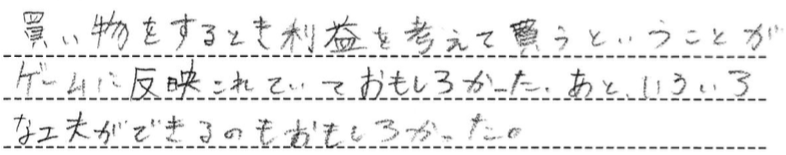 買い物をするとき利益を考えて買うということが
ゲームに反映されていておもしろかった。あと、いろいろ
な工夫ができるのもおもしろかった。